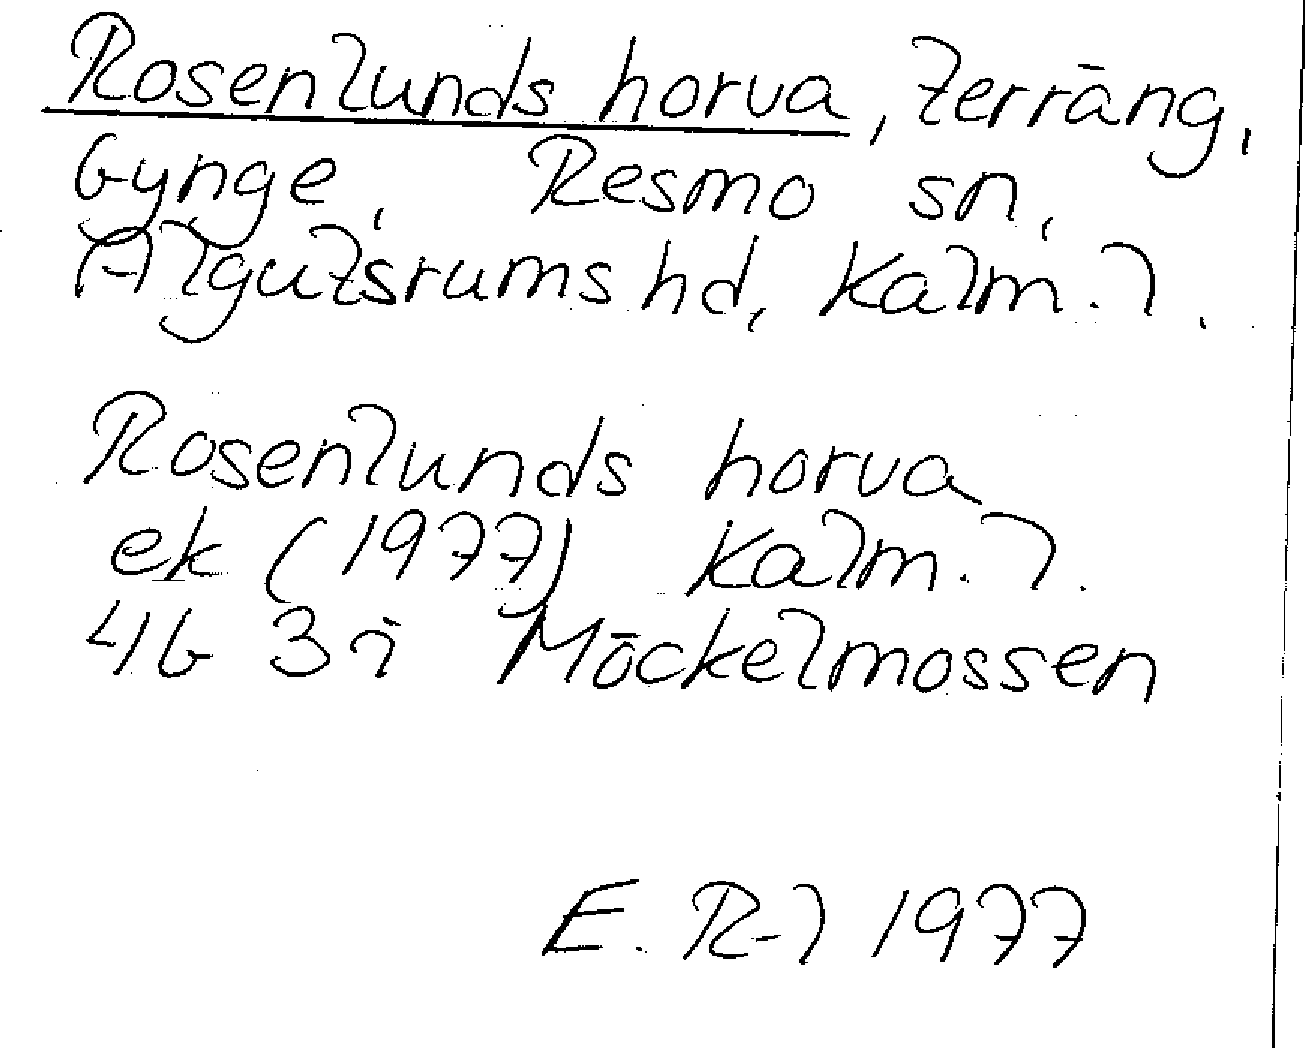 Rosenlunds horva, terräng,
Gynge, Resmo sn,
Algutsrums hd, Kalm. l.
Rosenlunds horva
ek (1977) Kalm. l.
4G 3i Möckelmossen
E. R-l 1977